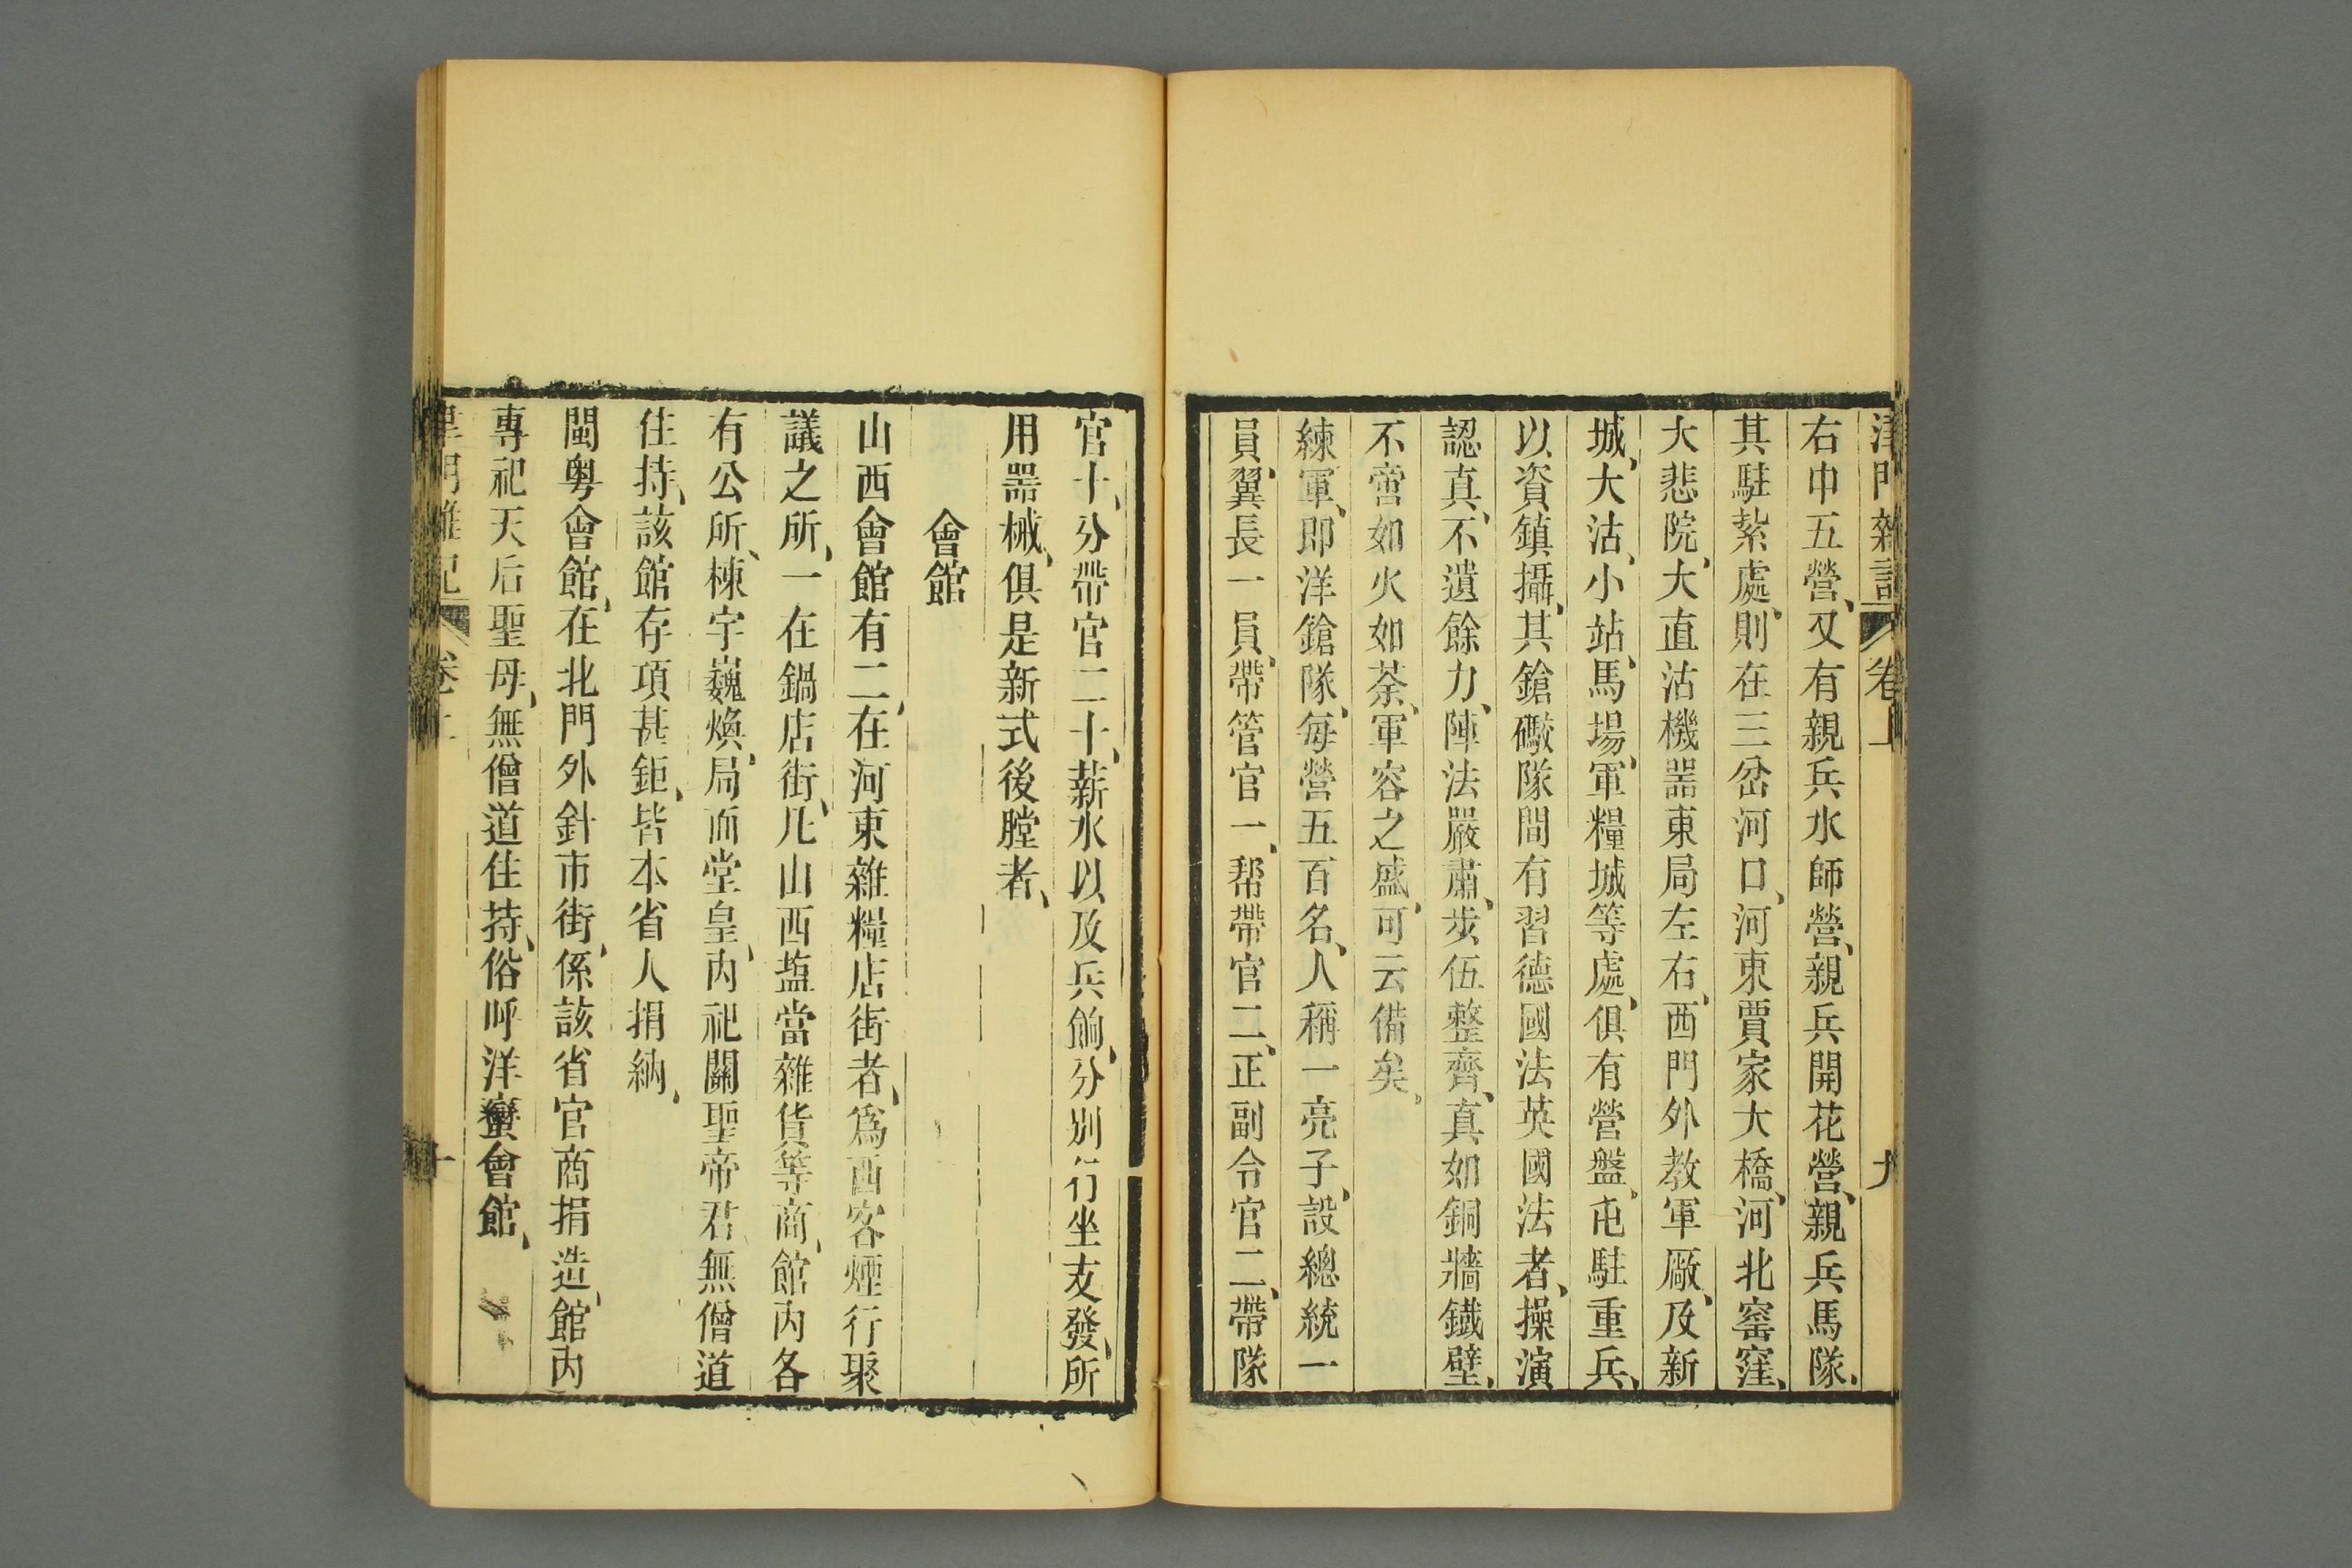 津門雜記 卷上 九
右中五營、又有親兵水師營、親兵開花營、親兵馬隊、
其駐紮處、則在三岔河口、河東賈家大橋、河北窰窪、
大悲院、大直沽機噐東局左右、西門外教軍厰、及新
城、大沽、小站、馬場、軍糧城等處、俱有營盤、屯駐重兵、
以資鎮攝、其鎗礮隊間有習德國法英國法者、操演
認真、不遺餘力、陣法嚴肅、步伍整齊、真如銅牆鐵壁、
不啻如火如荼、軍容之盛、可云備矣。
練軍、即洋鎗隊、每營五百名、人稱一亮子、設總統一
員、翼長一員、帶管官一、帮帶官二、正副令官二、帶隊
官十、分帶官二十、薪水以及兵餉、分別行坐支發、所
用噐械、俱是新式後膛者、
會館
山西會館有二、在河東雜糧店街者、爲西客煙行聚
議之所、一在鍋店街、凡山西塩當雜貨等商、館内各
有公所、棟宇巍煥、局面堂皇、内祀關聖帝君、無僧道
住持、該館存項甚鉅、皆本省人捐納、
閩粤會館、在北門外針市街、係該省官商捐造、館内
專祀天后聖母、無僧道住持、俗呼洋蠻會館、
津門雜記 卷上 十